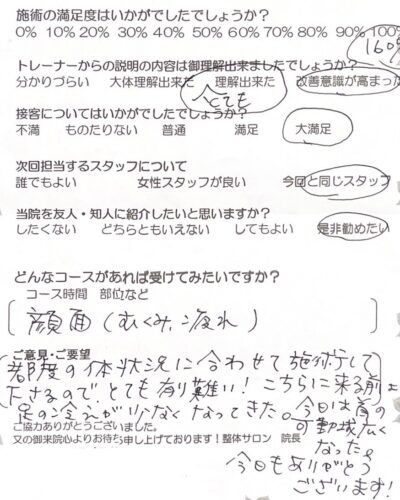 施術の満足度はいかがでしたでしょうか？
0% 10% 20% 30% 40% 50% 60% 70% 80% 90% 100%
160%
トレーナーからの説明の内容は御理解出来ましたでしょうか？
分かりづらい 大体理解出来た 理解出来た 改善意識が高まった
とても
接客についてはいかがでしたでしょうか？
不満 ものたりない 普通 満足 大満足
次回担当するスタッフについて
誰でもよい 女性スタッフが良い 今回と同じスタッフ
当院を友人・知人に紹介したいと思いますか？
したくない どちらともいえない してもよい 是非勧めたい
どんなコースがあれば受けてみたいですか？
コース時間 部位など
顔面（むくみ、疲れ）
ご意見・ご要望
都度の体状況に合わせて施術して
下さるので、とても有り難い！こちらに来る前よ
足の冷えが少なくなってきた。今日は首の
可動域広く
なった。
今日もありがとう
ございます！
ご協力ありがとうございました。
又の御来院心よりお待ち申し上げております！整体サロン 院長